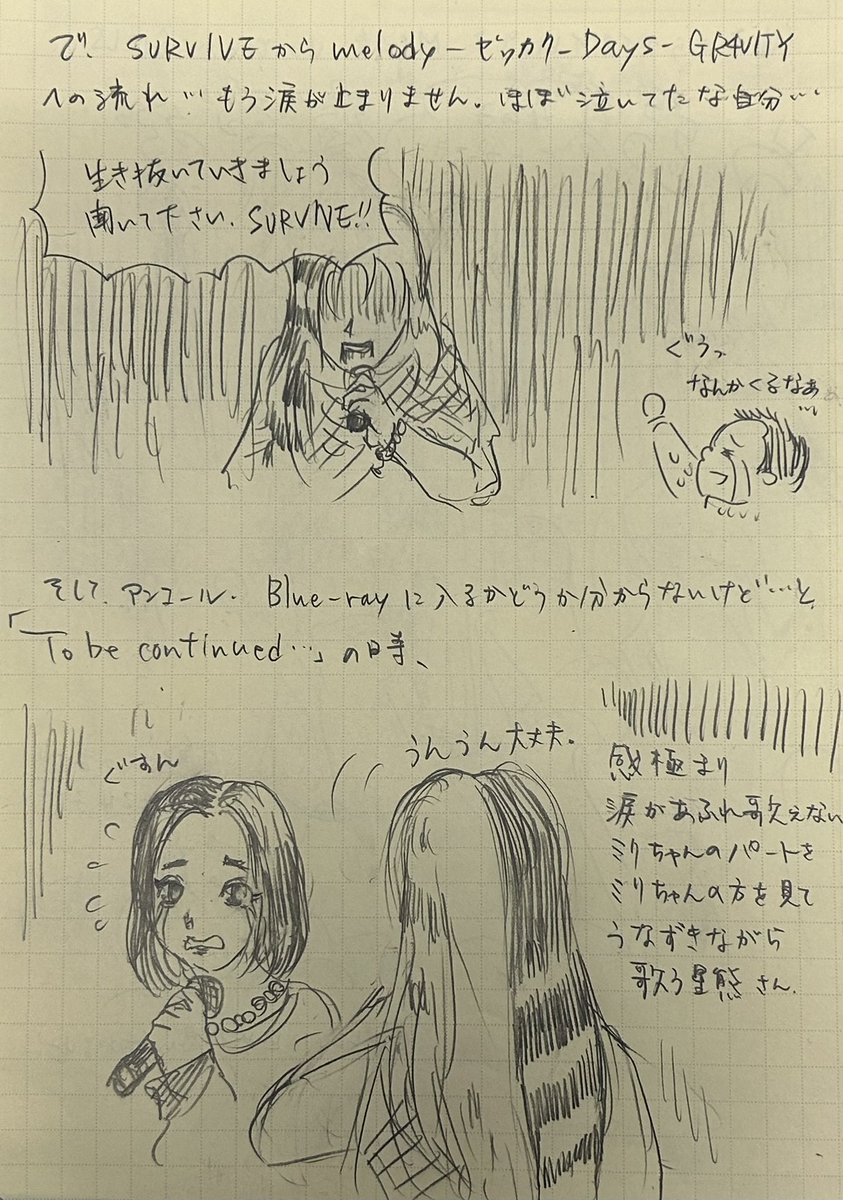 で、SURVIVEからmelody－ゼッカクーDays－GR4VITY
への流れ…もう涙が止まりません。ほぼ泣いてたな自分…
生き抜いていきましょう
聞いて下さい、SURVIVE!!
ぐうっ
なんかくるなぁ
…
そして、アンコール。Blue-rayに入るかどうか分からないけど…と、
「To be continued…」の時、
ぐすん
うんうん大丈夫。
感極まり
涙があふれ歌えない
ミリちゃんのパートを
ミリちゃんの方を見て
うなずきながら
歌う星熊さん。